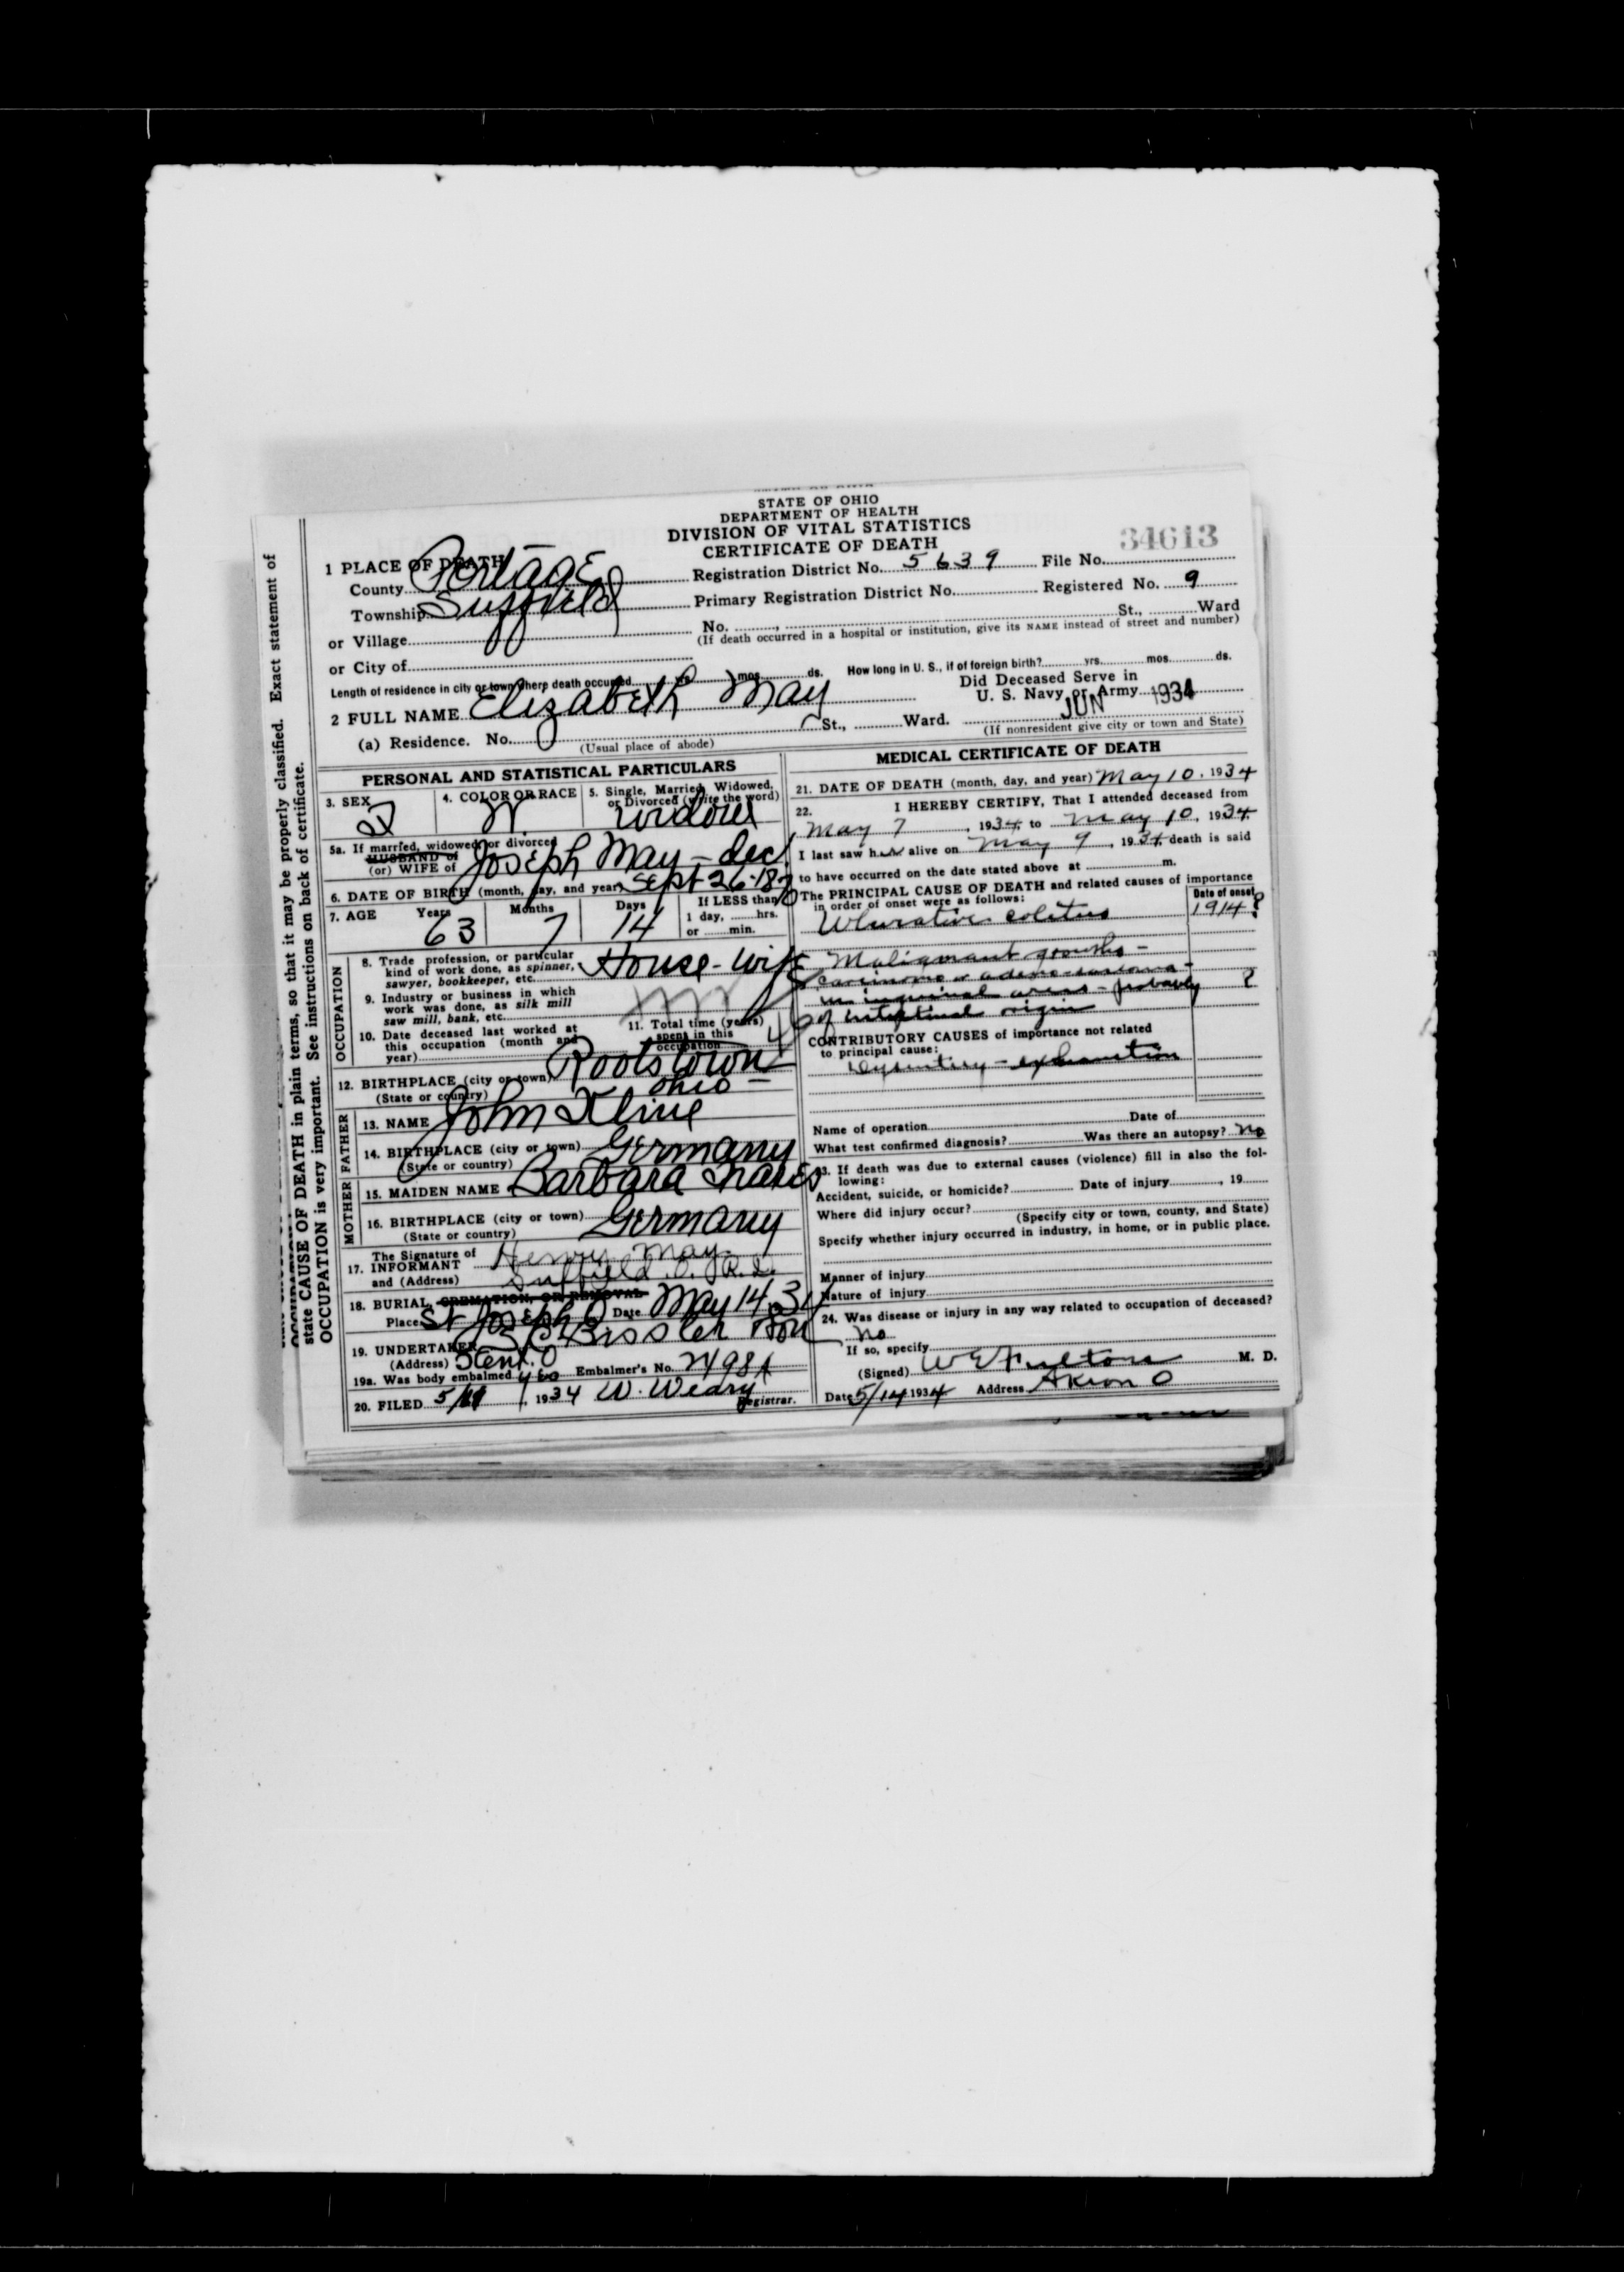 STATE OF OHIO
DEPARTMENT OF HEALTH
DIVISION OF VITAL STATISTICS
CERTIFICATE OF DEATH
34613
1 PLACE OF DEATH
County Portage Registration District No. 5639 File No.
Township Suffield Primary Registration District No. Registered No. 9
or Village No. , St., Ward
(If death occurred in a hospital or institution, give its NAME instead of street and number)
or City of
Length of residence in city or town where death occurred yrs. mos. ds. How long in U. S., if of foreign birth? yrs. mos. ds.
2 FULL NAME Elizabeth May Did Deceased Serve in
U. S. Navy or Army
JUN 1934
(a) Residence. No. St., Ward.
(Usual place of abode) (If nonresident give city or town and State)
PERSONAL AND STATISTICAL PARTICULARS
3. SEX F
4. COLOR OR RACE W
5. Single, Married, Widowed, or Divorced (write the word) widow
5a. If married, widowed, or divorced
HUSBAND of
(or) WIFE of Joseph May - dec
6. DATE OF BIRTH (month, day, and year) Sept 26-1870
7. AGE Years 63 Months 7 Days 14 If LESS than
1 day, hrs.
or min.
OCCUPATION
8. Trade, profession, or particular
kind of work done, as spinner,
sawyer, bookkeeper, etc. House-wife
9. Industry or business in which
work was done, as silk mill
saw mill, bank, etc.
10. Date deceased last worked at
this occupation (month and
year)
11. Total time (years)
spent in this
occupation
12. BIRTHPLACE (city or town) Rootstown
(State or country) Ohio
FATHER
13. NAME John Kline
14. BIRTHPLACE (city or town) Germany
(State or country)
MOTHER
15. MAIDEN NAME Barbara
16. BIRTHPLACE (city or town) Germany
(State or country)
17. The Signature of
INFORMANT Henry May
and (Address) Suffield O. R.D.
18. BURIAL, CREMATION, OR REMOVAL
Place St Joseph O Date May 14, 34
19. UNDERTAKER S C Bissler Son
(Address) Kent. O
19a. Was body embalmed yes Embalmer's No. 2498A
20. FILED 5/14, 1934 W. Weary
Registrar.
MEDICAL CERTIFICATE OF DEATH
21. DATE OF DEATH (month, day, and year) May 10, 1934
22. I HEREBY CERTIFY, That I attended deceased from
May 7, 1934, to May 10, 1934
I last saw her alive on May 9, 1934, death is said
to have occurred on the date stated above at m.
The PRINCIPAL CAUSE OF DEATH and related causes of importance
in order of onset were as follows: Date of onset
Ulcerative colitis 1914?
Malignant growths -
carcinoma or adeno-sarcoma -
in inguinal areas - probably ?
of intestinal origin
CONTRIBUTORY CAUSES of importance not related
to principal cause:
Dysentery - exhaustion
Name of operation Date of
What test confirmed diagnosis? Was there an autopsy? no
23. If death was due to external causes (violence) fill in also the fol-
lowing:
Accident, suicide, or homicide? Date of injury , 19
Where did injury occur?
(Specify city or town, county, and State)
Specify whether injury occurred in industry, in home, or in public place.
Manner of injury
Nature of injury
24. Was disease or injury in any way related to occupation of deceased?
no
If so, specify
(Signed) W E Fulton M. D.
Date 5/14 1934 Address Akron O
state CAUSE OF DEATH in plain terms, so that it may be properly classified. Exact statement of
OCCUPATION is very important. See instructions on back of certificate.